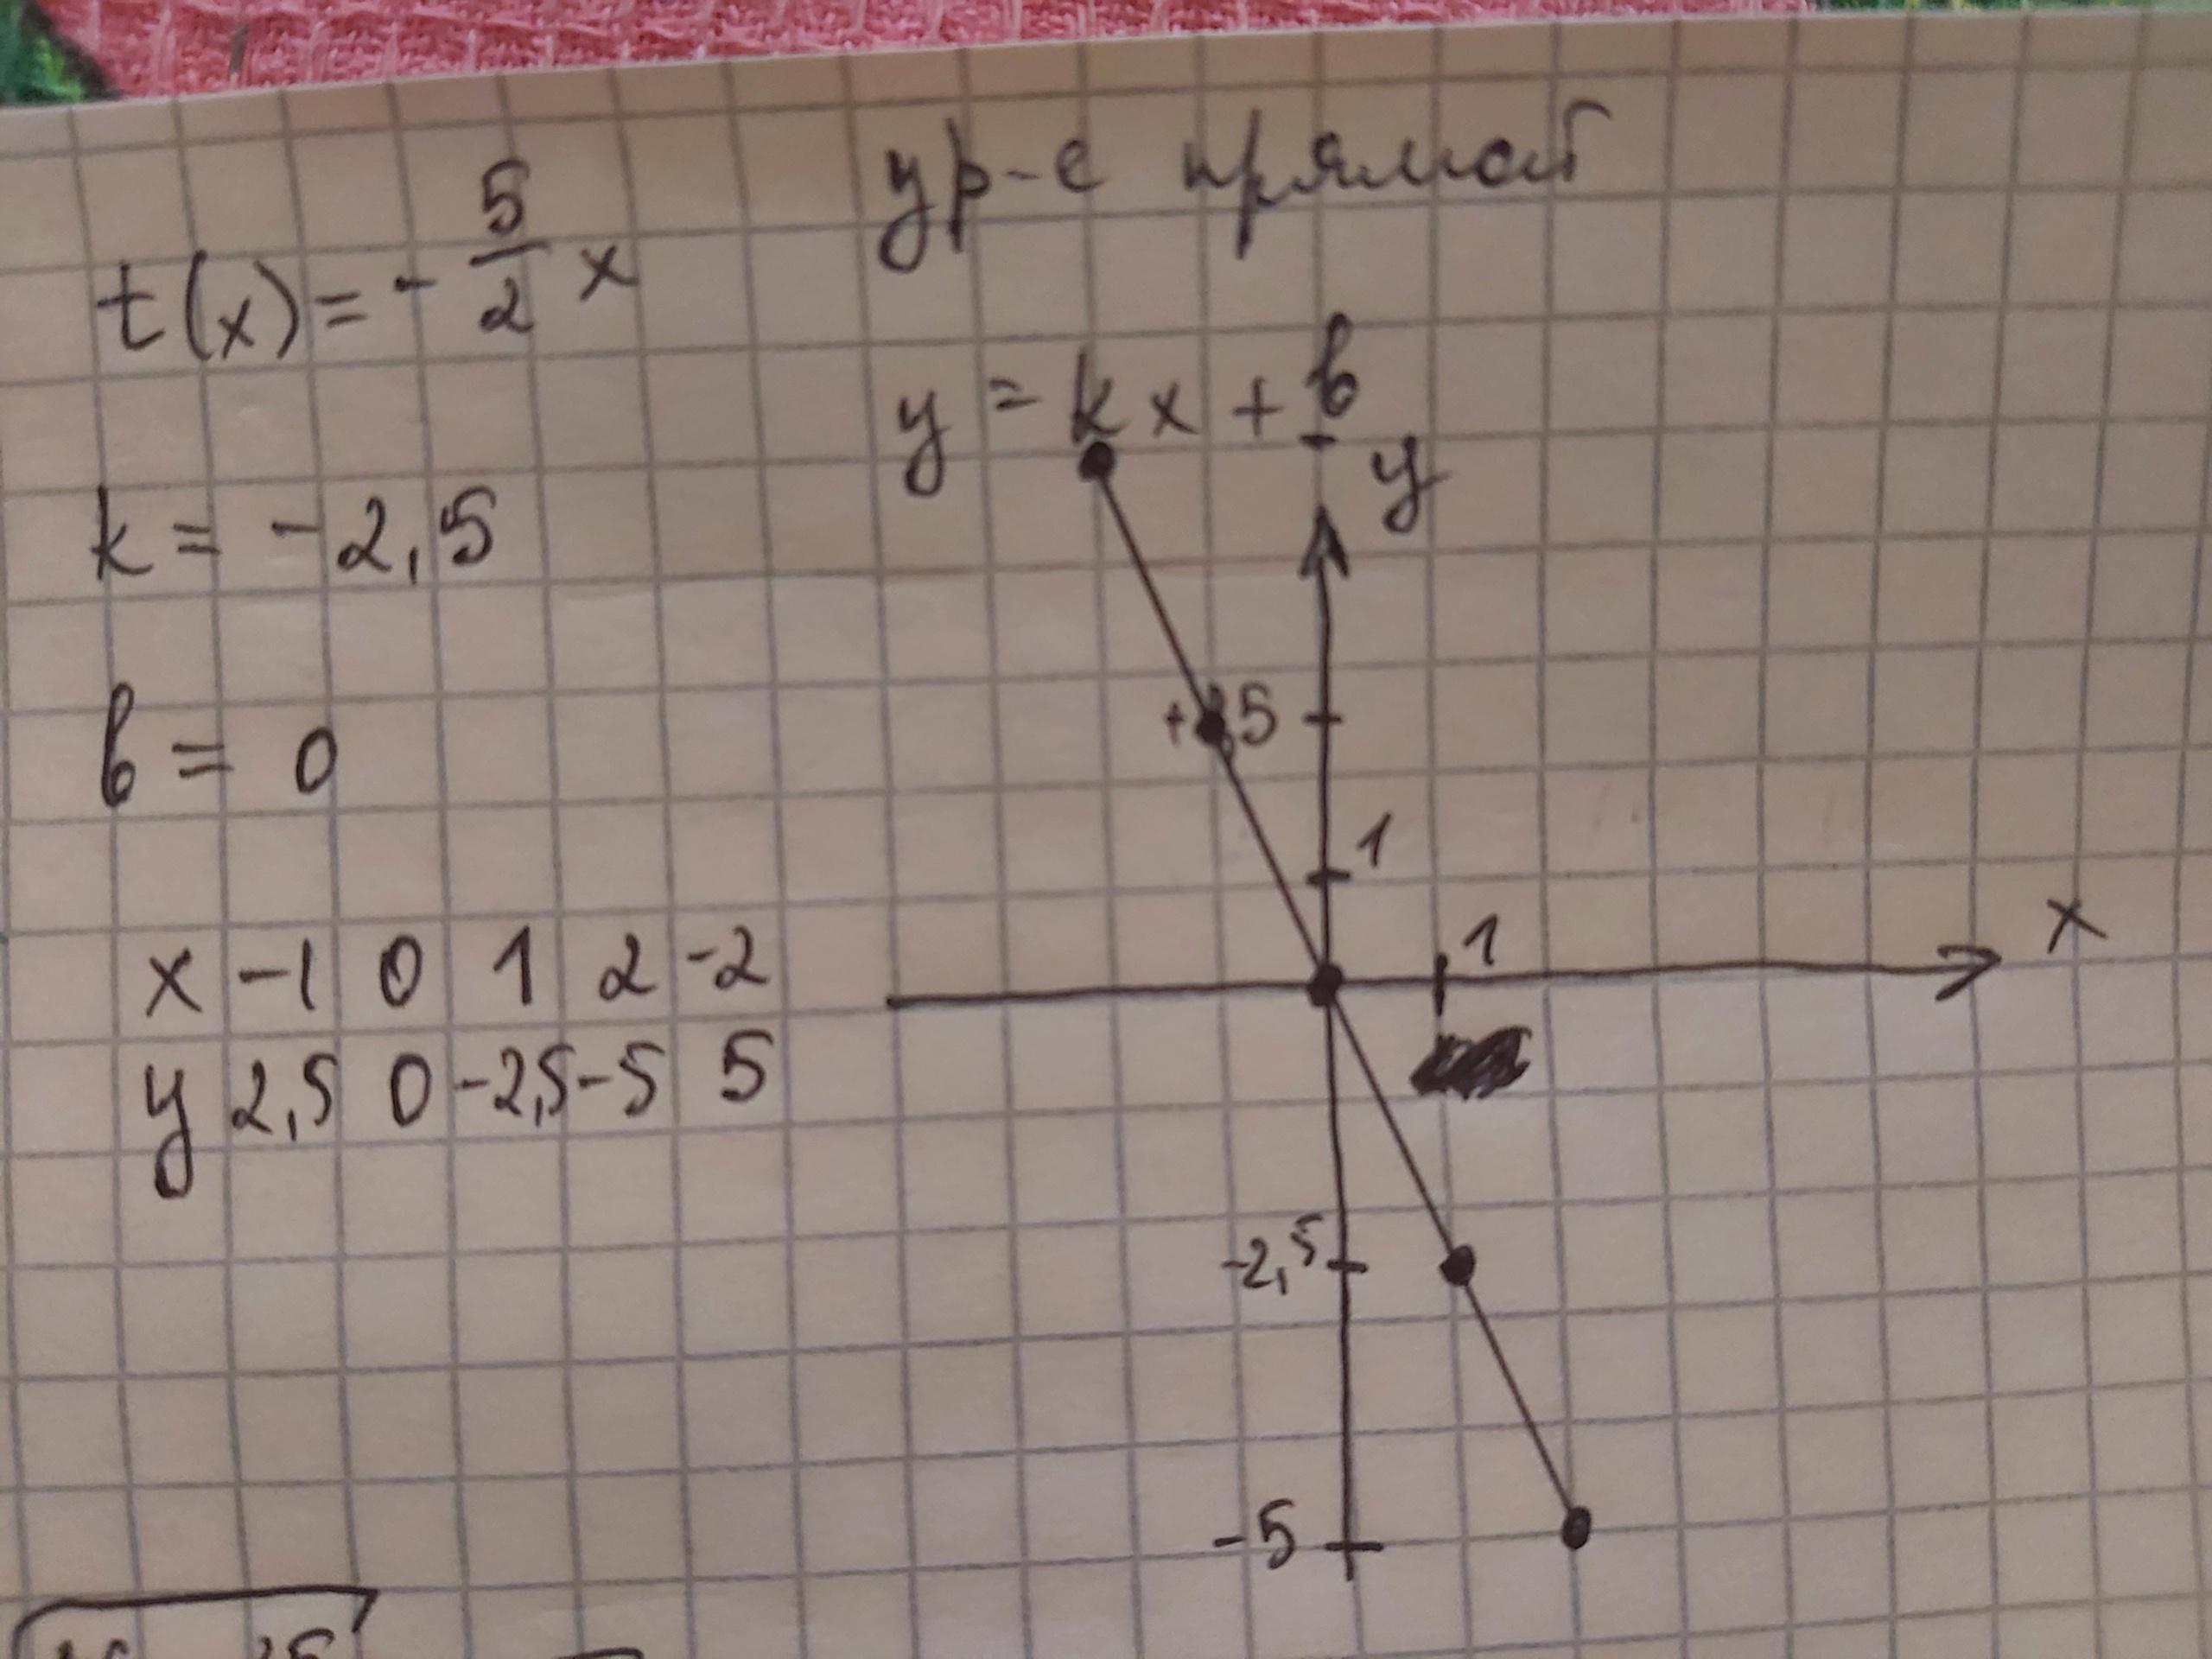 t(x) = - 5/2 x
ур-е прямой
y = kx + b
k = -2,5
b = 0
x -1 0 1 2 -2
y 2,5 0 -2,5 -5 5
y
5
1
1
x
-2,5
-5